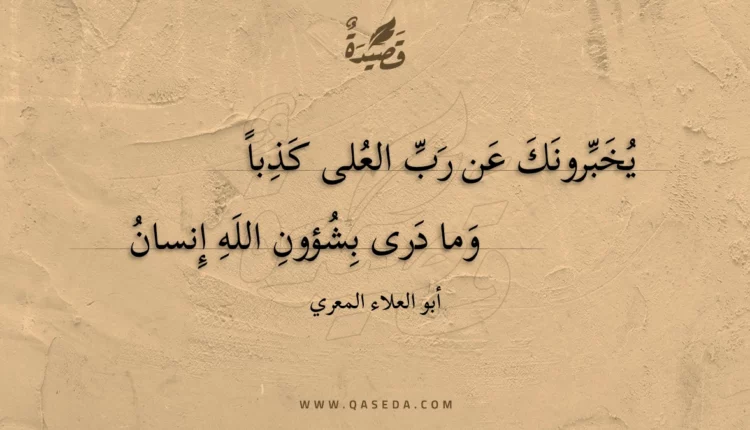 قَصِيْدَةٌ
يُخَبِّرونَكَ عَن رَبِّ العُلى كَذِباً
وَما دَرى بِشُؤونِ اللَهِ إِنسانُ
أبو العلاء المعري
WWW.QASEDA.COM